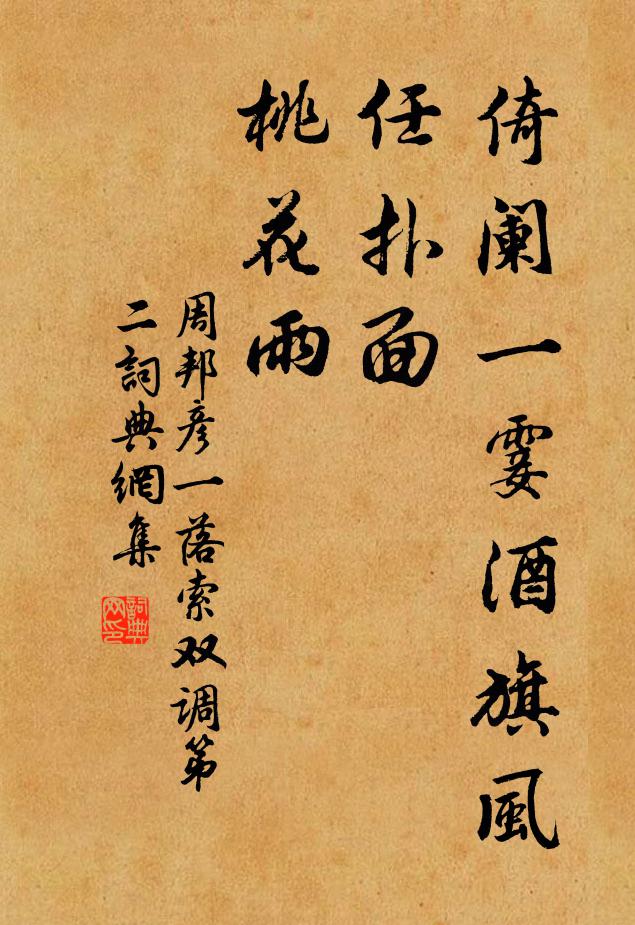 倚阑一霎酒旗風
任扑面
桃花雨
周邦彦一落索双调第
二詞典網集
詞典網印